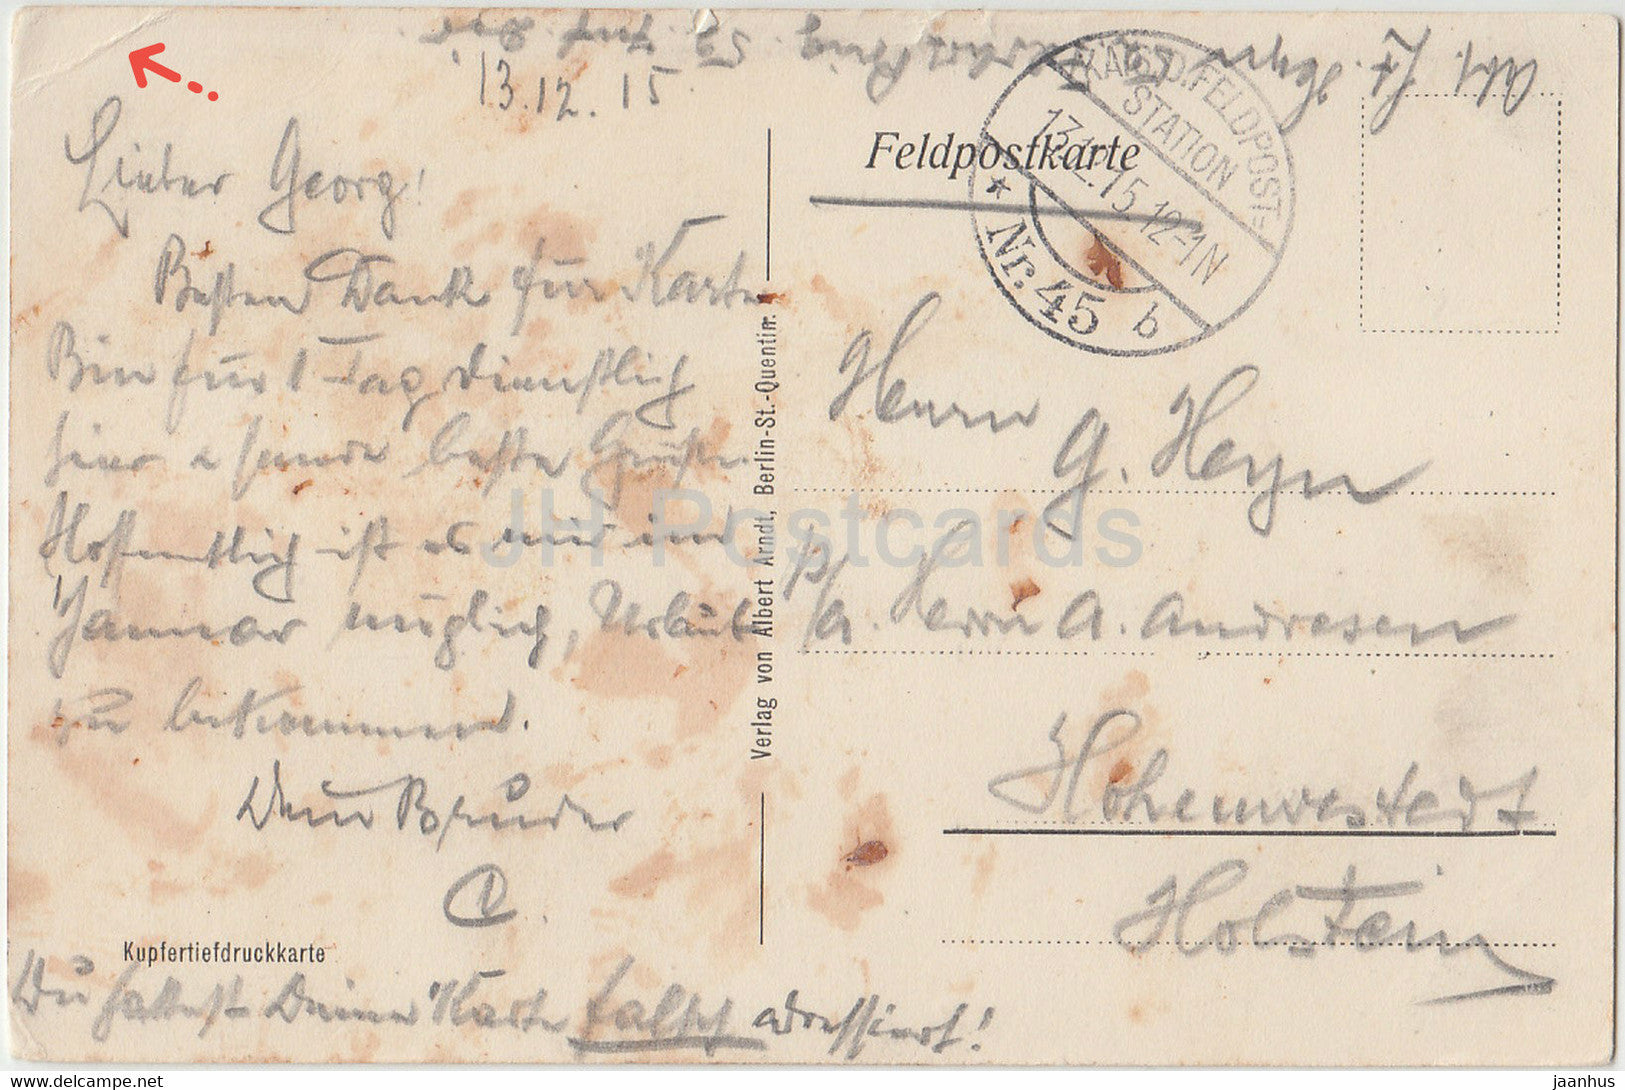 13.12.15.
Lieber Georg!
Besten Dank für Karte
Bin für 1 Tag dienstlich
hier u sende beste Grüße.
Hoffentlich ist es mir im
Januar möglich, Urlaub
zu bekommen.
Dein Bruder
C
Kupfertiefdruckkarte
Du hattest Deine Karte falsch adressiert!
Verlag von Albert Arndt, Berlin-St.-Quentin.
Feldpostkarte
K.D.FELDPOST=
STATION
13.12.15.12-1N
* Nr. 45 b
Herrn
G. Heyn
p/a. Herrn A. Andresen
Hohenwestedt
Holstein
JH Postcards
www.delcampe.net
jaanhus